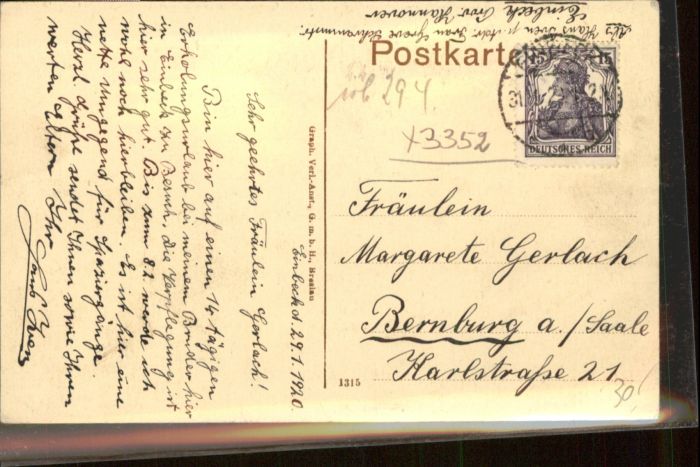 Abs. Hans Iven p. Adr. Frau Grove Schrammstr.
Einbeck Prov Hannover
Postkarte
15 15
DEUTSCHES REICH
294.
x3352
Fräulein
Margarete Gerlach
Bernburg a./Saale
Karlstraße 21
30,
Graph. Verl.-Anst., G. m. b. H., Breslau
1315
Einbeck d. 29.1.1920.
Sehr geehrtes Fräulein Gerlach!
Bin hier auf einen 14 tägigen
Erholungsurlaub bei meinem Bruder hier
in Einbeck zu Besuch. Die Verpflegung ist
hier sehr gut. Bis zum 8.2. werde ich
wohl noch hierbleiben. Es ist hier eine
nette Umgegend für Spaziergänge.
Herzl. Grüße sendet Ihnen sowie Ihren
werten Eltern Ihr
Hans Iven